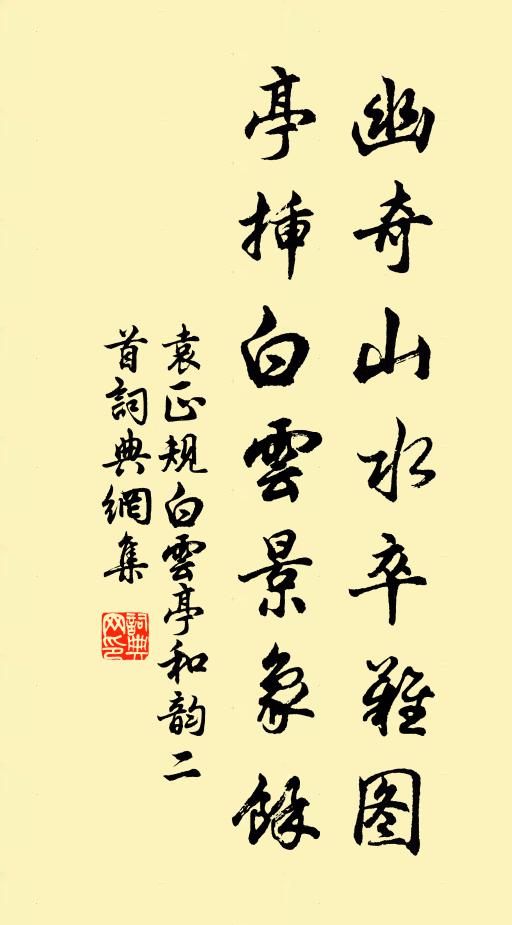 幽奇山水卒難图
亭挿白雲景象餘
袁正規白雲亭和韵二
首詞典網集
詞典
网印